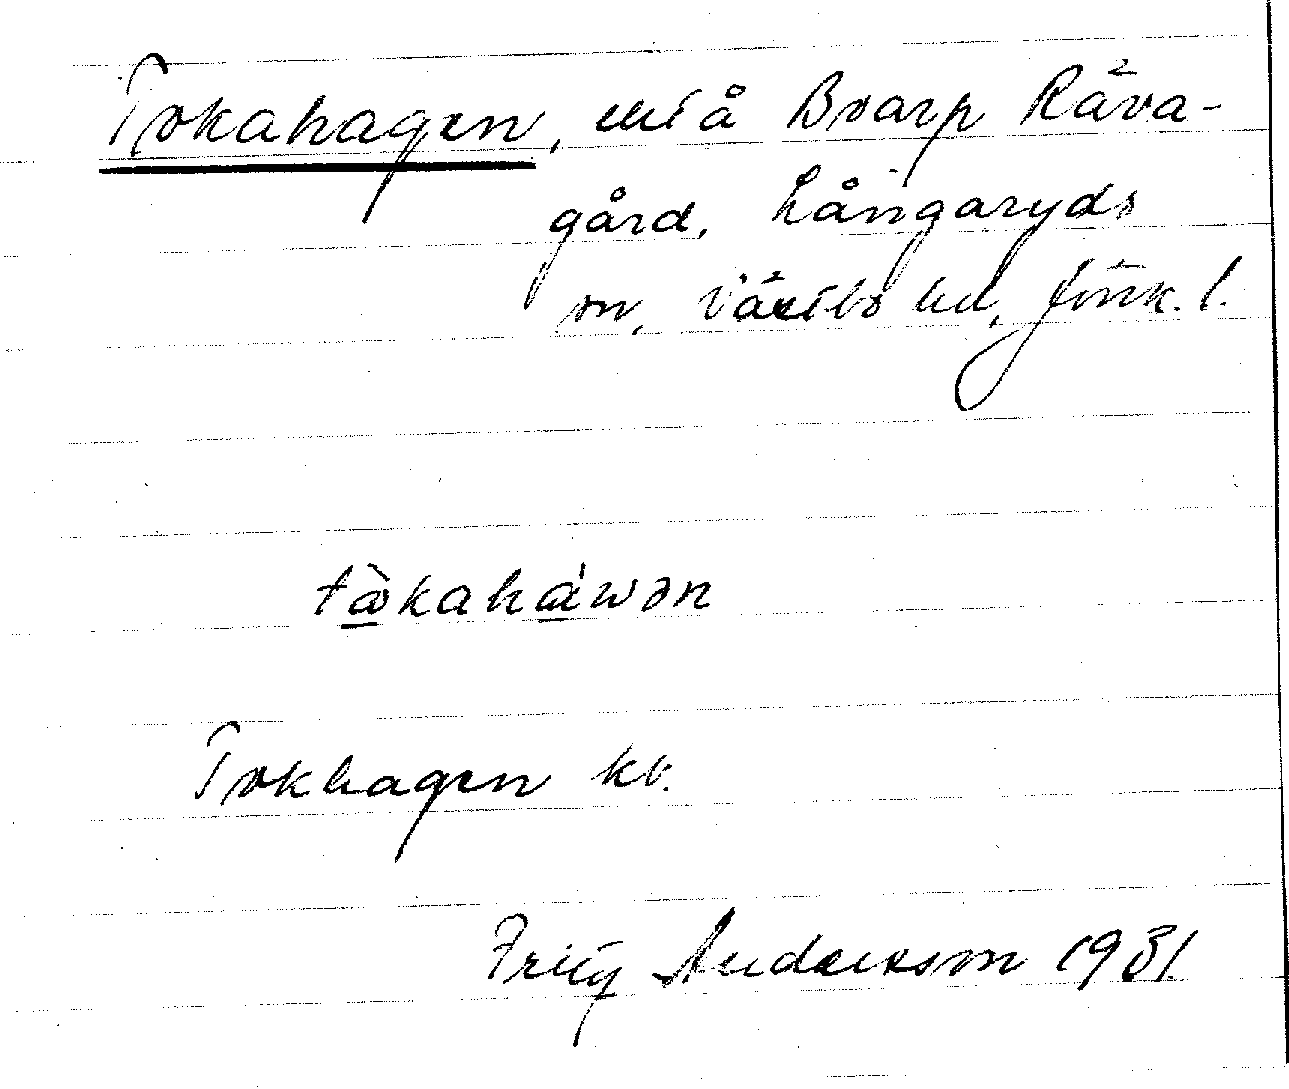 Tokahagen, urf å Boarp Räva-
gård, Långaryds
sn, Västbo hd, Jönk. l.
tɷ̀kahá'wən
Tokhagen kv.
Fritz Andersson 1931